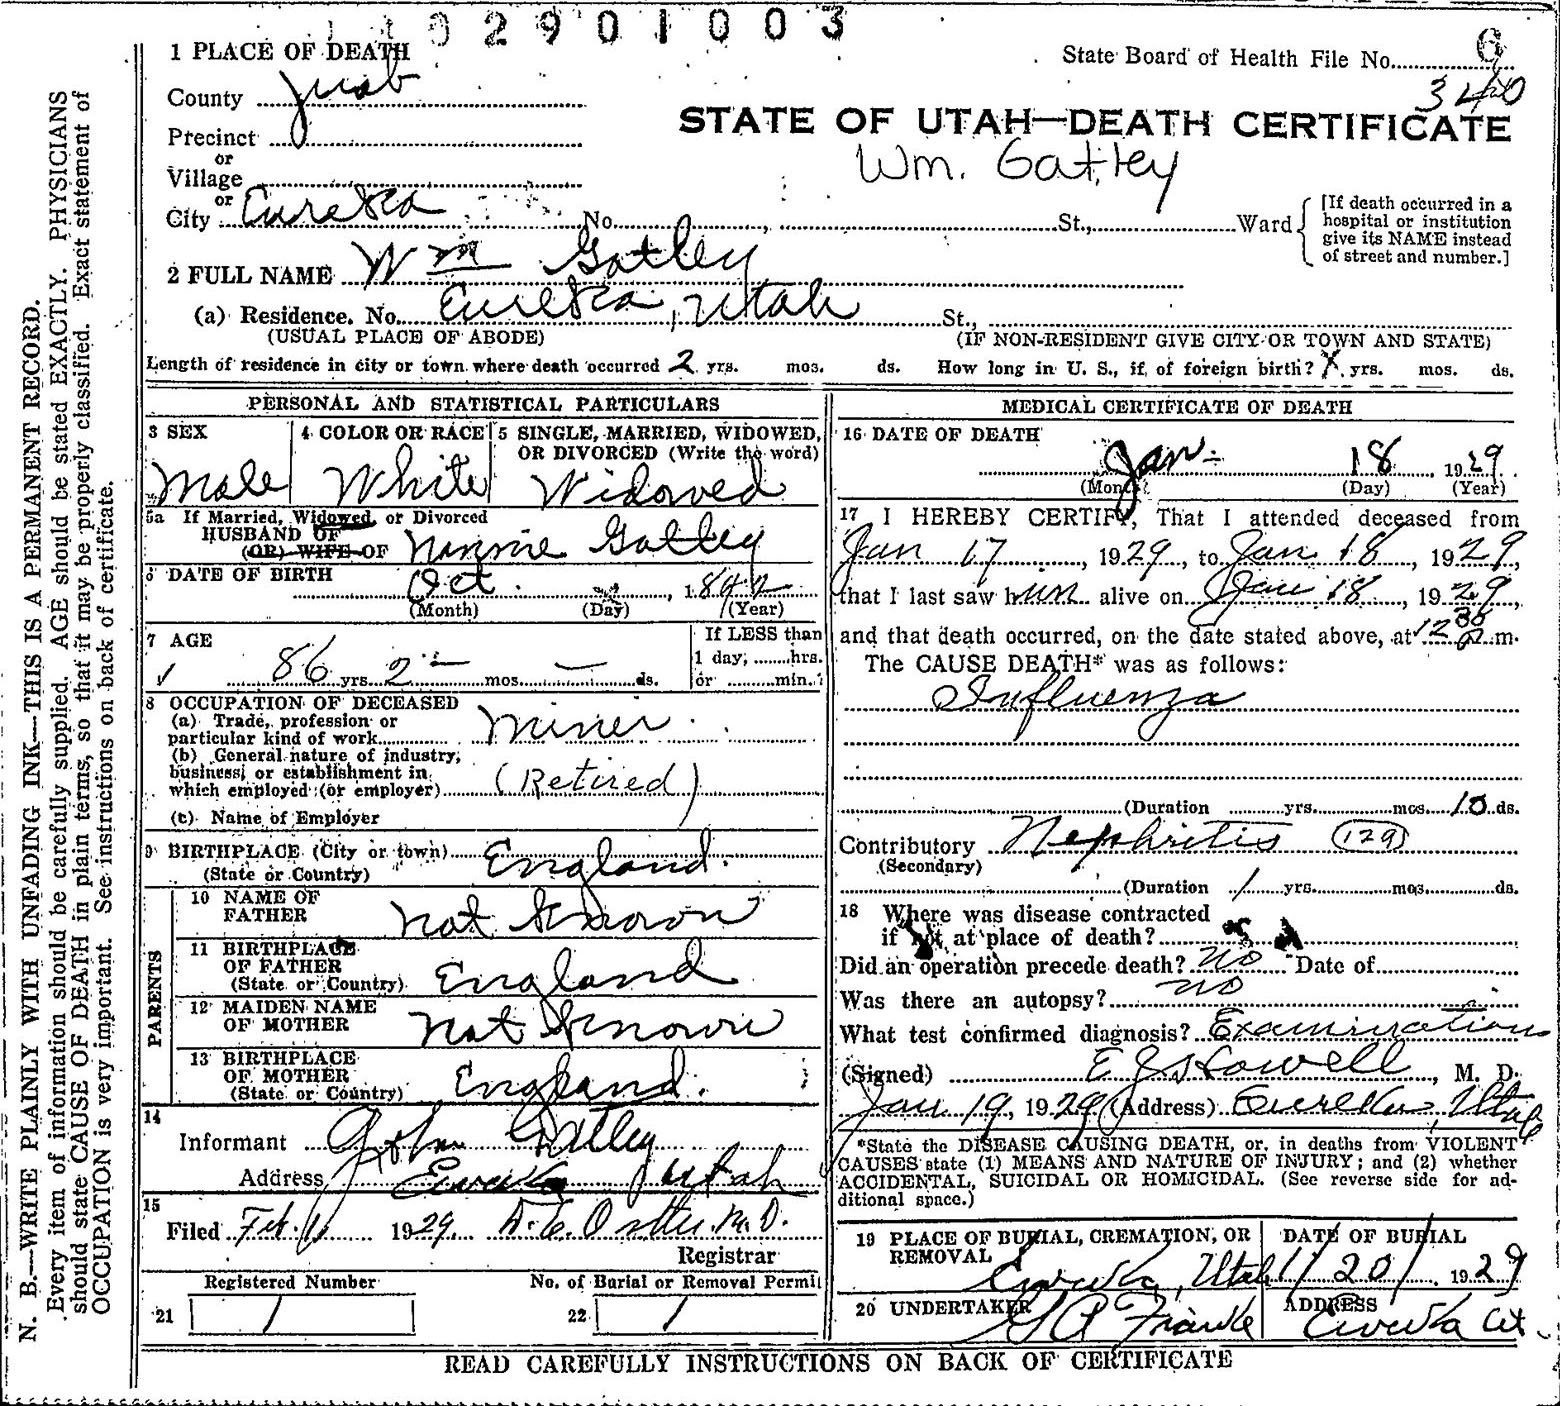 02901003
1 PLACE OF DEATH
State Board of Health File No. 6
340
County Juab
STATE OF UTAH—DEATH CERTIFICATE
Precinct
or
Wm. Gatley
Village
or
City Eureka No. St., Ward
[If death occurred in a
hospital or institution
give its NAME instead
of street and number.]
2 FULL NAME Wm Gatley
(a) Residence. No. Eureka, Utah St.,
(USUAL PLACE OF ABODE) (IF NON-RESIDENT GIVE CITY OR TOWN AND STATE)
Length of residence in city or town where death occurred 2 yrs. mos. ds. How long in U. S., if of foreign birth? X yrs. mos. ds.
PERSONAL AND STATISTICAL PARTICULARS
3 SEX
Male
4 COLOR OR RACE
White
5 SINGLE, MARRIED, WIDOWED,
OR DIVORCED (Write the word)
Widowed
5a If Married, Widowed, or Divorced
HUSBAND OF
(OR) WIFE OF Nannie Gatley
6 DATE OF BIRTH Oct. , 1842
(Month) (Day) (Year)
7 AGE
86 yrs. 2 mos. — ds.
If LESS than
1 day, hrs.
or min.
8 OCCUPATION OF DECEASED
(a) Trade, profession or
particular kind of work Miner
(b) General nature of industry,
business, or establishment in
which employed (or employer) (Retired)
(c) Name of Employer
9 BIRTHPLACE (City or town) England.
(State or Country)
PARENTS
10 NAME OF
FATHER Not Known
11 BIRTHPLACE
OF FATHER
(State or Country) England
12 MAIDEN NAME
OF MOTHER Not Known
13 BIRTHPLACE
OF MOTHER
(State or Country) England.
14
Informant John Gatley
Address Eureka Utah
15
Filed Feb. 1, 1929.
Registrar
Registered Number
21 1
No. of Burial or Removal Permit
22 1
MEDICAL CERTIFICATE OF DEATH
16 DATE OF DEATH
Jan- 18 1929
(Month) (Day) (Year)
17 I HEREBY CERTIFY, That I attended deceased from
Jan 17, 1929, to Jan 18, 1929,
that I last saw him alive on Jan 18, 1929,
and that death occurred, on the date stated above, at 12 30 P.m.
The CAUSE DEATH* was as follows:
Influenza
(Duration yrs. mos. 10 ds.
Contributory Nephritis (129)
(Secondary)
(Duration 1 yrs. mos. ds.
18 Where was disease contracted
if not at place of death?
Did an operation precede death? No Date of
Was there an autopsy? no
What test confirmed diagnosis? Examination
(Signed) E J Howell, M. D.
Jan 19, 1929 (Address) Eureka, Utah
*State the DISEASE CAUSING DEATH, or, in deaths from VIOLENT
CAUSES state (1) MEANS AND NATURE OF INJURY; and (2) whether
ACCIDENTAL, SUICIDAL OR HOMICIDAL. (See reverse side for ad-
ditional space.)
19 PLACE OF BURIAL, CREMATION, OR
REMOVAL Eureka, Utah
DATE OF BURIAL
1/20/ 1929
20 UNDERTAKER
G A Franke
ADDRESS
Eureka Ut
READ CAREFULLY INSTRUCTIONS ON BACK OF CERTIFICATE
N. B.—WRITE PLAINLY WITH UNFADING INK—THIS IS A PERMANENT RECORD.
Every item of information should be carefully supplied. AGE should be stated EXACTLY. PHYSICIANS
should state CAUSE OF DEATH in plain terms, so that it may be properly classified. Exact statement of
OCCUPATION is very important. See instructions on back of certificate.